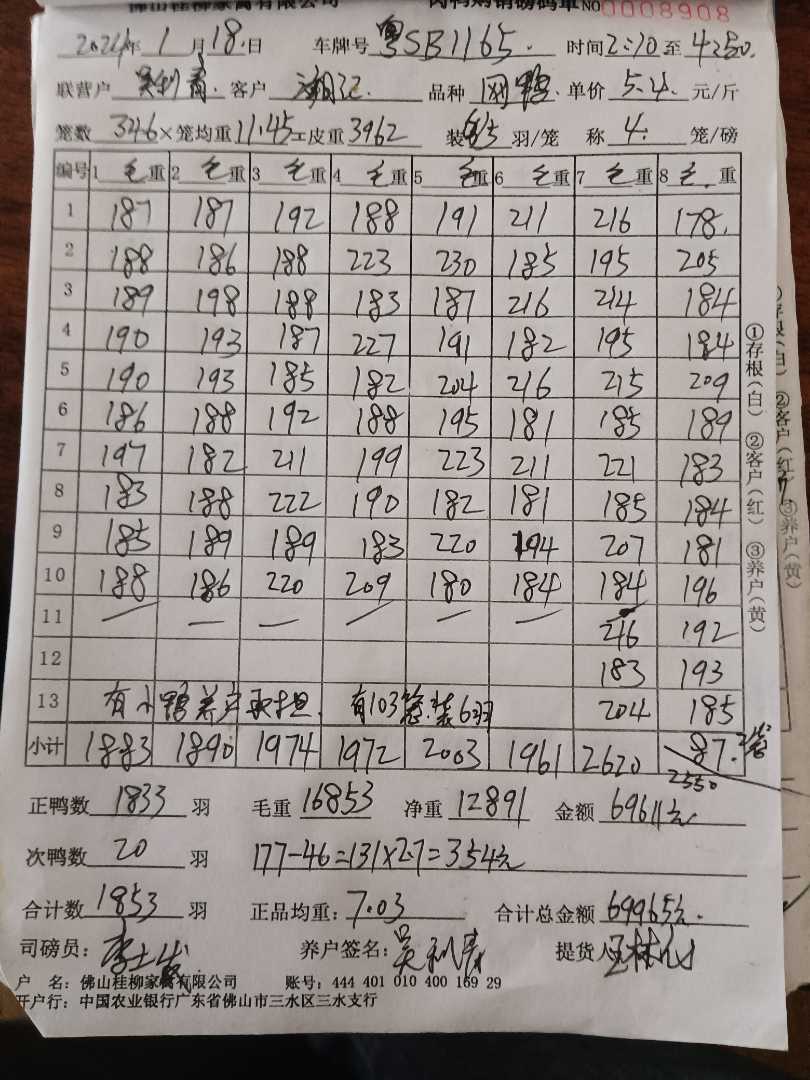 佛山桂柳家禽有限公司 肉鸭购销磅码单 NO 0008908
2024年 1月 18日 车牌号 粤SB1165. 时间2:10至4:50.
联营户 吴利青. 客户 湘江. 品种 网鸭 单价 5.4. 元/斤
笼数 346×笼均重11.45=皮重3962 装 羽/笼 称 4. 笼/磅
编号 1 毛重 2 毛重 3 毛重 4 毛重 5 毛重 6 毛重 7 毛重 8 毛.重
1 187 187 192 188 191 211 216 178.
2 188 186 188 223 230 185 195 205
3 189 198 188 183 187 216 214 184
4 190 193 187 227 191 182 195 184
5 190 193 185 182 204 216 215 209
6 186 188 192 188 195 181 185 189
7 197 182 211 199 223 211 221 183
8 183 188 222 190 182 181 185 184
9 185 189 189 183 220 194 207 181
10 188 186 220 209 180 184 184 196
11 — — — — — — 216 192
12 183 193
13 有小鸭养户承担. 有103笼.装6羽 204 185
小计 1883 1890 1974 1972 2003 1961 2620 87.2笼
2550
正鸭数 1833 羽 毛重 16853 净重 12891 金额 69611元
次鸭数 20 羽 177-46=131×2.7=354元
合计数 1853 羽 正品均重: 7.03 合计总金额 69965元.
司磅员: 养户签名: 吴利青 提货人
户 名: 佛山桂柳家禽有限公司 账号: 444 401 010 400 169 29
开户行: 中国农业银行广东省佛山市三水区三水支行
①存根(白) ②客户(红) ③养户(黄)
②客户(红) ③养户(黄)